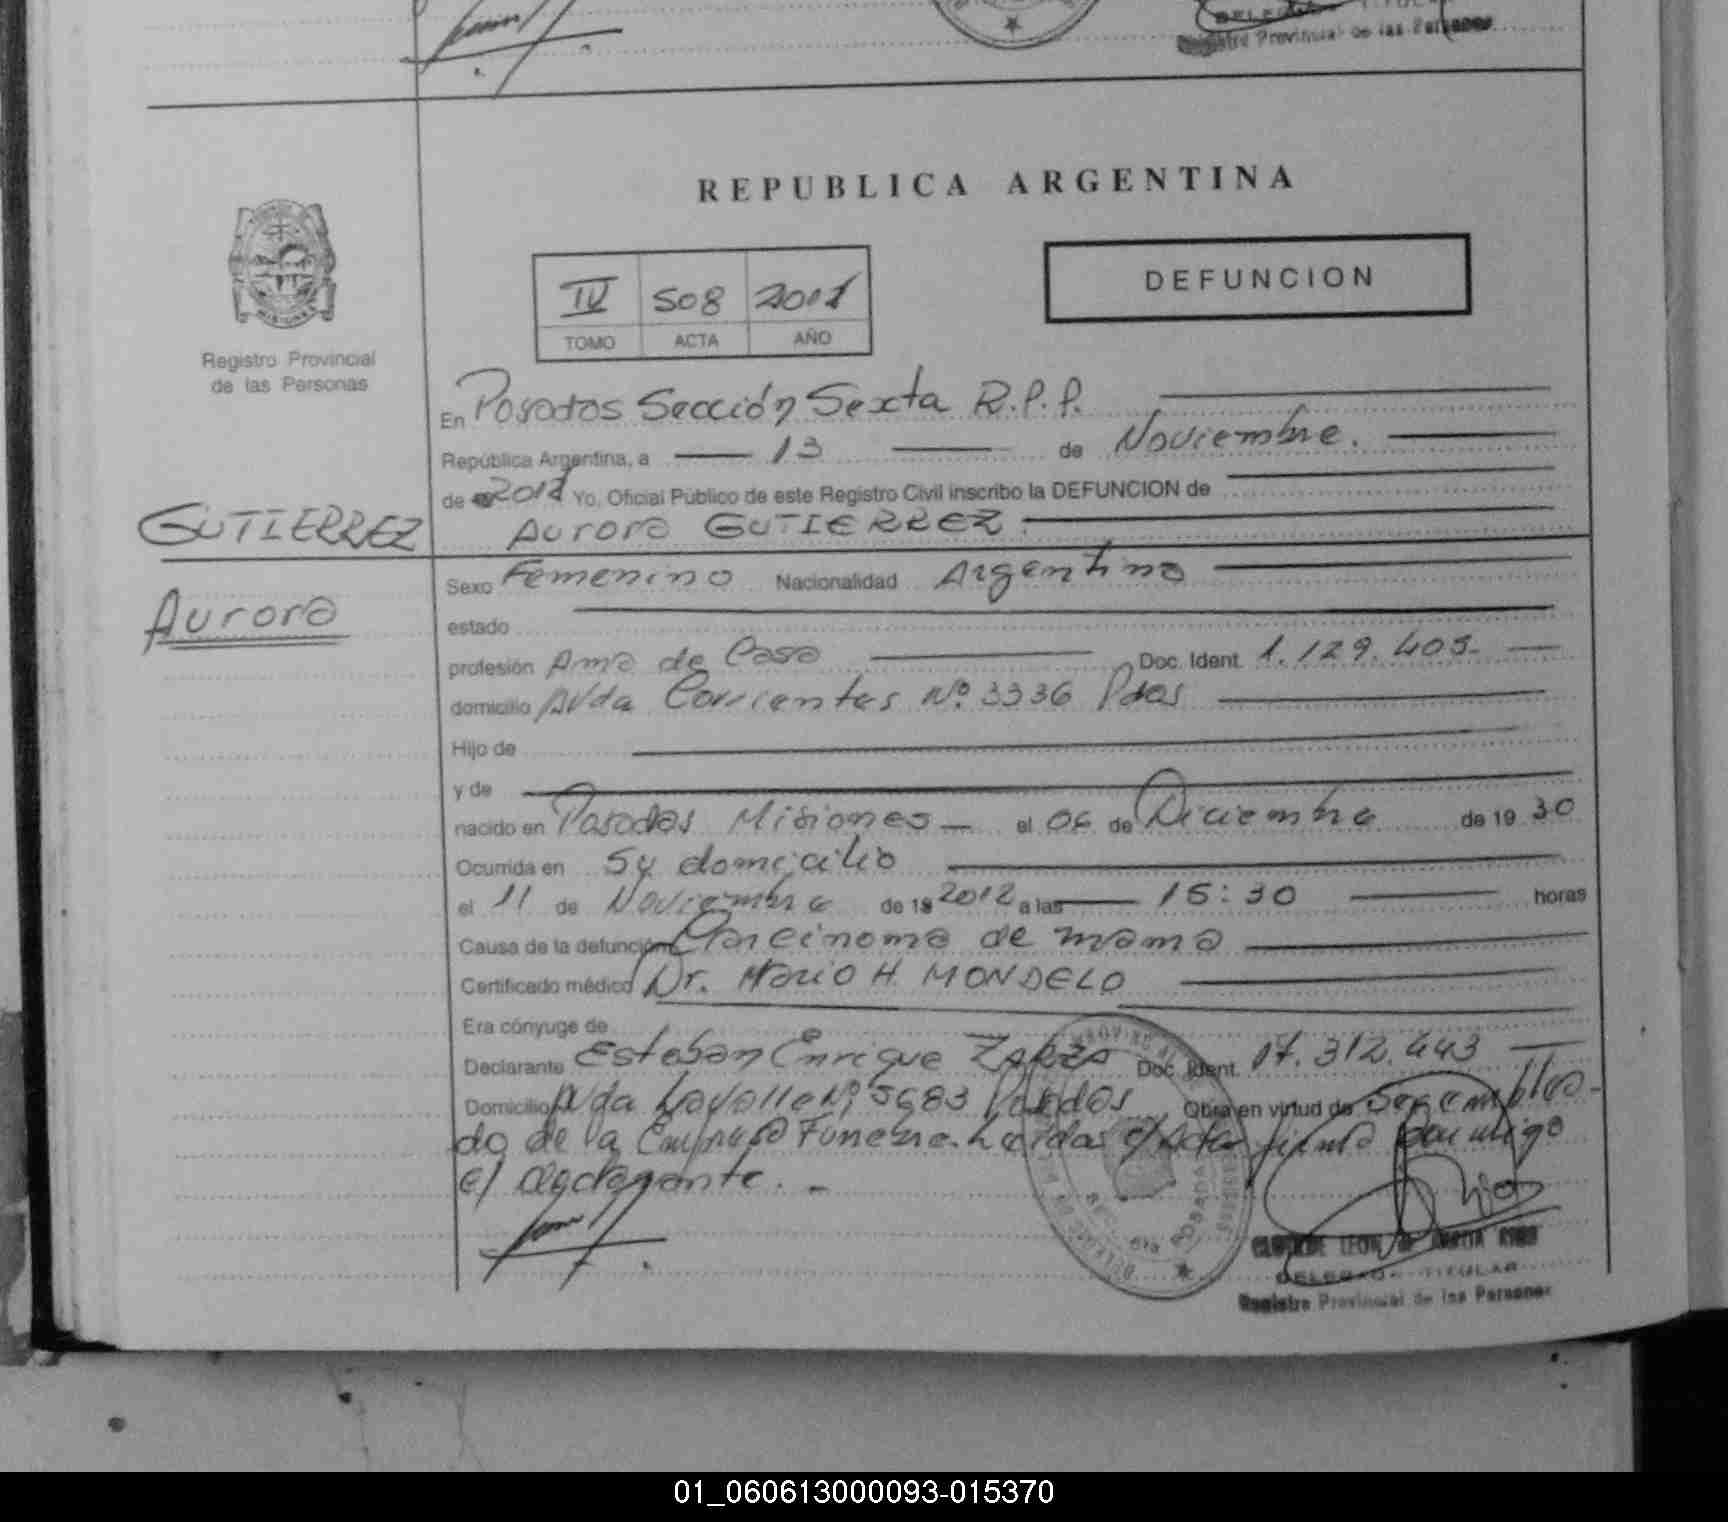 DELEGADO TITULAR
Registro Provincial de las Personas
REPUBLICA ARGENTINA
IV 508 2001
TOMO ACTA AÑO
DEFUNCION
Registro Provincial
de las Personas
En Posadas Sección Sexta R.P.P.
República Argentina, a 13 de Noviembre.
de 2012 Yo, Oficial Público de este Registro Civil inscribo la DEFUNCION de
GUTIERREZ Aurora GUTIERREZ
Sexo Femenino Nacionalidad Argentina
Aurora
estado
profesión Ama de Casa Doc. Ident. 1.129.405-
domicilio Avda Corrientes Nº 3336 Pdas
Hijo de
y de
nacido en Posadas Misiones - el 06 de Diciembre de 19 30
Ocurrida en Su domicilio
el 11 de Noviembre de 19 2012 a las 15:30 horas
Causa de la defunción Carcinoma de mama
Certificado médico Dr. Mario H. MONDELO
Era cónyuge de
Declarante Esteban Enrique ZARZA Doc. Ident. 17.312.443
Domicilio Avda Lavalle Nº 5683 Posadas Obra en virtud de Ser emplea-
do de la Empresa Funeraria firma conmigo
el declarante. -
DELEGADO TITULAR
Registro Provincial de las Personas
01_060613000093-015370